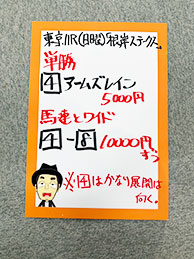 東京11R(日曜)根岸ステークス
単勝
4 アームズレイン
5000円
馬連とワイド
4-8 10000円
ずつ
※4はかなり展開は
向く。